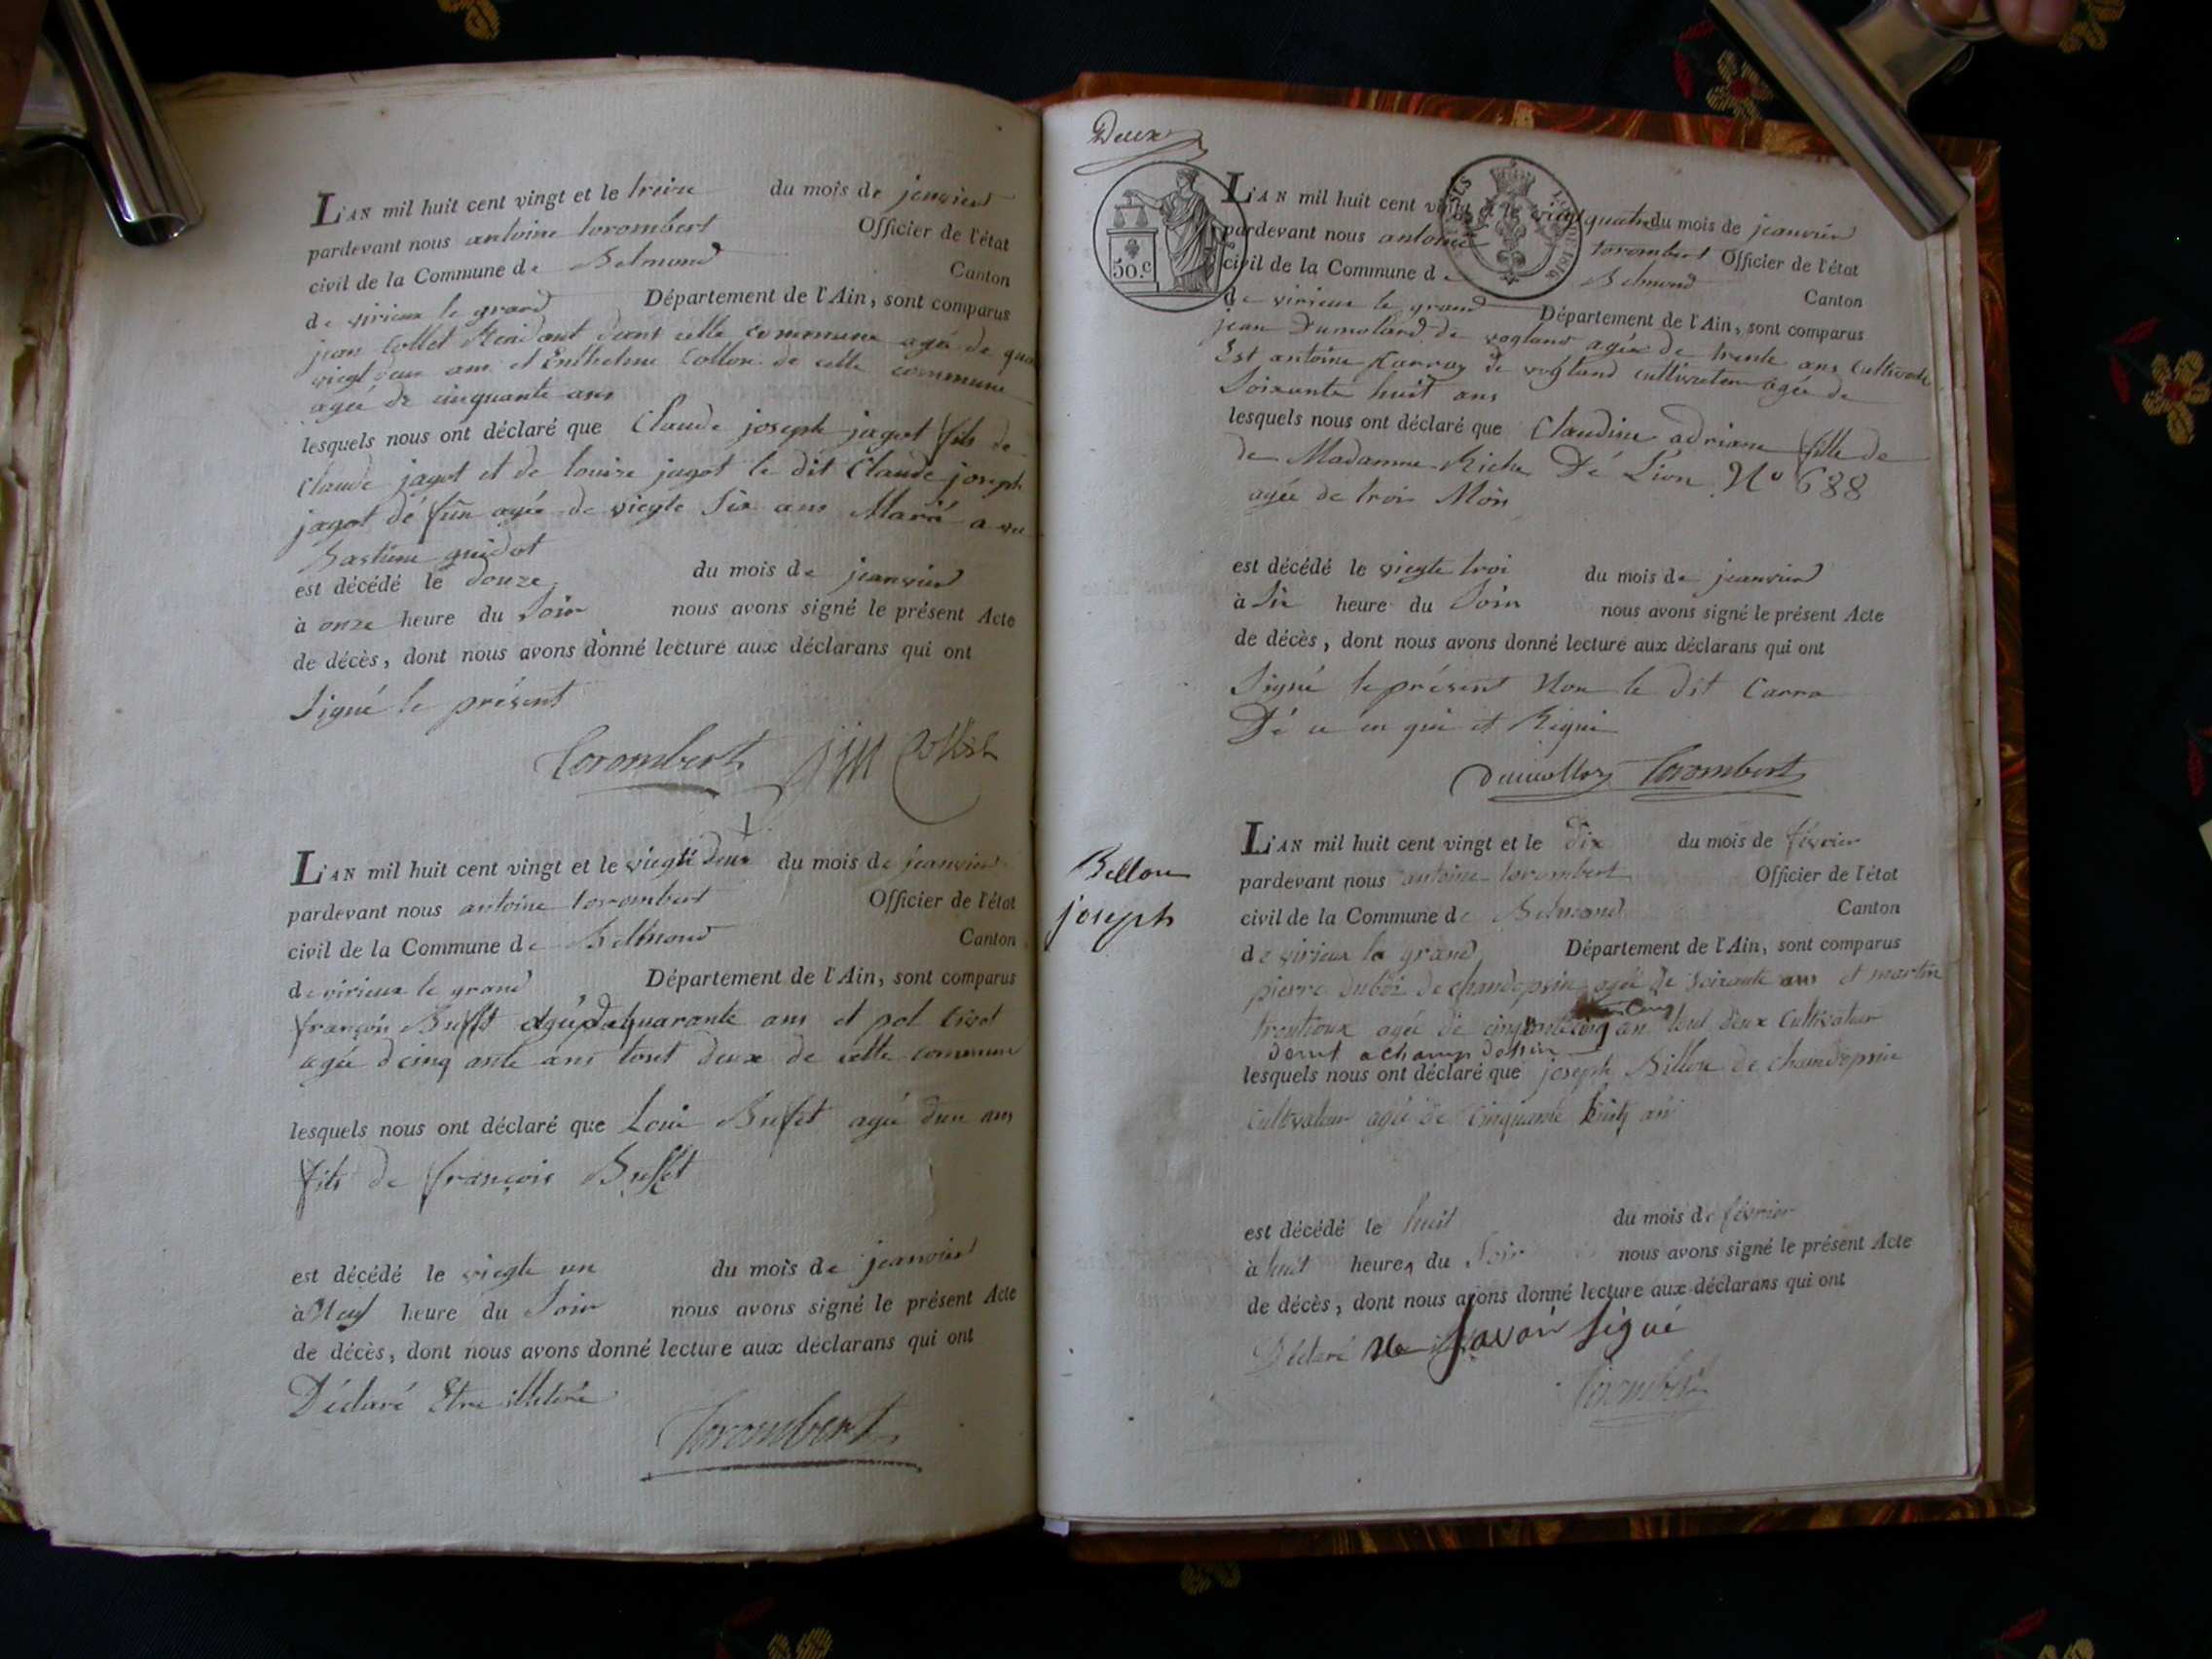 L'AN mil huit cent vingt et le treize du mois de jenvier
pardevant nous antoine torombert Officier de l'état
civil de la Commune de Belmond Canton
de virieux le grand Département de l'Ain, sont comparus
jean Collet dant cette commune agé de
viegt deux ans et Enthelme Collon de cette commune
agée de cinquante ans
lesquels nous ont déclaré que Claude joseph jagot fils de
Claude jagot et de louise jagot le dit Claude joseph
jagot dé fun agée de viegte Six ans Marié a
guidot
est décédé le douze du mois de jeanvier
à onze heure du Soir nous avons signé le présent Acte
de décès, dont nous avons donné lecture aux déclarans qui ont
Signé le présent
Torombert Collet
L'AN mil huit cent vingt et le viegte deux du mois de jeanvier
pardevant nous antoine torombert Officier de l'état
civil de la Commune de Belmond Canton
de virieux le grand Département de l'Ain, sont comparus
françois Buffet agée de quarante ans et pol
agée d cinq ante ans tout deux de cette commune
lesquels nous ont déclaré que Loui Bufet agé dun ans
fils de françois Buffet
est décédé le viegte un du mois de jeanvier
à Neuf heure du Soir nous avons signé le présent Acte
de décès, dont nous avons donné lecture aux déclarans qui ont
Déclaré Etre illiteré
Torombert
Deux
50.c
L'AN mil huit cent vingt et le viegt quatre du mois de jeanvier
pardevant nous antoine torombert Officier de l'état
civil de la Commune de Belmond Canton
de virieux le grand Département de l'Ain, sont comparus
jean Dumolard de vogland agée de trente ans Cultivate
Est antoine Carray de vogland cultivateur agée de
Soixante huit ans
lesquels nous ont déclaré que Claudine adriane fille de
de Madamme Riche Dé Lion No 688
agée de troi Mois
est décédé le viegte troi du mois de jeanvier
à Six heure du Soir nous avons signé le présent Acte
de décès, dont nous avons donné lecture aux déclarans qui ont
Signé le présent Non le dit Carra
Dé ce en qui et Riqui
Torombert
Bellon
joseph
L'AN mil huit cent vingt et le dix du mois de février
pardevant nous antoine torombert Officier de l'état
civil de la Commune de Belmond Canton
de virieux le grand Département de l'Ain, sont comparus
pierre duboi de chandoprin agée de Soixante ans et martin
agée de cinquante cinq an tout deux Cultivateur
lesquels nous ont déclaré que joseph Billon de chandoprin
Cultivateur agée de Cinquante huit an
est décédé le huit du mois de février
à huit heures du Soir nous avons signé le présent Acte
de décès, dont nous avons donné lecture aux déclarans qui ont
Déclaré Ne Savoir signé
Torombert